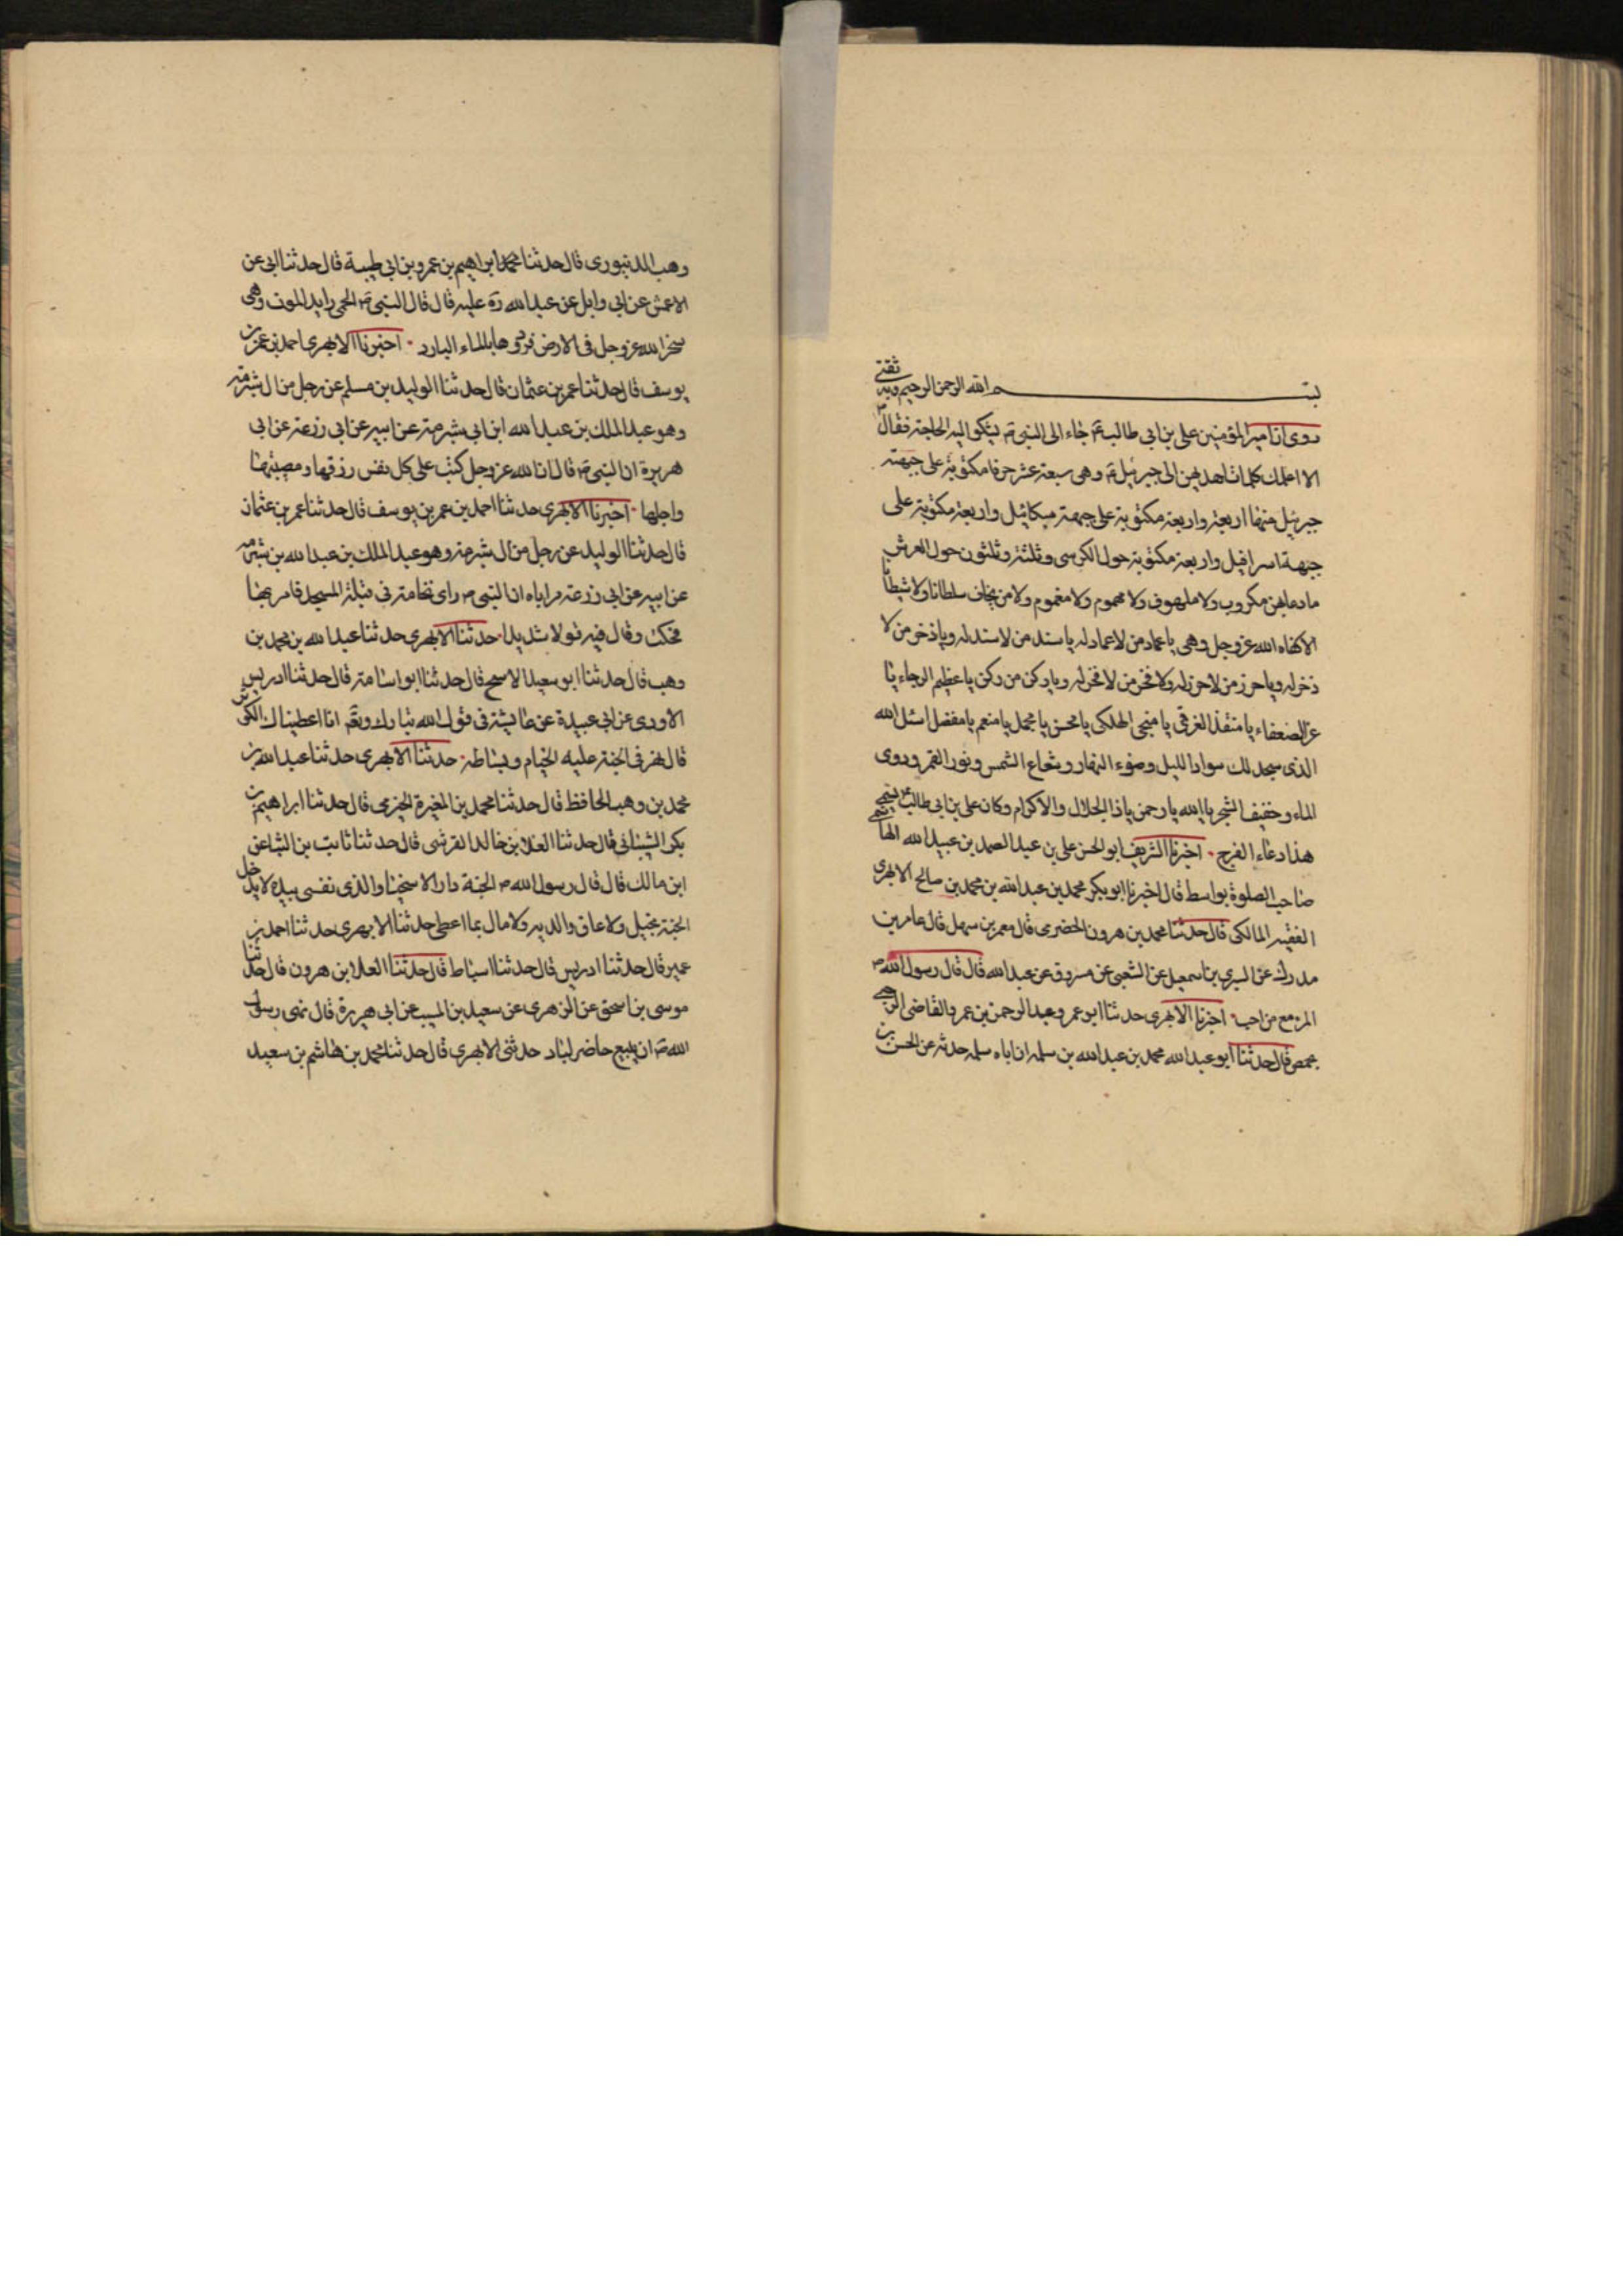 بسم الله الرحمن الرحيم وبه ثقتي
روى ان امير المؤمنين على بن ابى طالب ع جاء الى النبى ص يشكو اليه الحاجة فقال
الا اعلمك كلمات اهداهن الى جبرئيل ع وهى سبعة عشر حرفا مكتوبة على جبهته
جبرئيل منها اربعة واربعة مكتوبة على جبهة ميكائيل واربعة مكتوبة على
جبهة اسرافيل واربعة مكتوبة حول الكرسى وثلثة وثلثون حول العرش
ما دعا بهن مكروب ولا ملهوف ولا مهموم ولا مغموم ولا من يخاف سلطانا ولا شيطانا
الا كفاه الله عز وجل وهى يا عماد من لا عماد له يا سند من لا سند له ويا ذخر من لا
ذخر له ويا حرز من لا حرز له ولا فخر من لا فخر له ويا ركن من ركن يا عظيم الرجاء يا
عز الضعفاء يا منقذ الغرقى يا منجى الهلكى يا محسن يا مجمل يا منعم يا مفضل اسئل الله
الذى سجد لك سواد الليل وضوء النهار وشعاع الشمس ونور القمر ودوى
الماء وحفيف الشجر يا الله يا رحمن يا ذا الجلال والاكرام وكان على بن ابى طالب ع يسمى
هذا دعاء الفرج اخبرنا الشريف ابو الحسن على بن عبد الصمد بن عبيد الله الهاشمى
صاحب الصلوة بواسط قال اخبرنا ابو بكر محمد بن عبد الله بن محمد بن صالح الابهرى
الفقيه المالكى قال حدثنا محمد بن هرون الحضرمى قال معمر بن سهل قال عامر بن
مدرك عن السرى بن اسمعيل عن الشعبى عن مسروق عن عبد الله قال قال رسول الله ص
المرء مع من احب اخبرنا الابهرى حدثنا ابو عمرو عبد الرحمن بن عمرو القاضى الرحبى
بحمص قال حدثنا ابو عبد الله محمد بن عبد الله بن سلمه ان اباه سلمه حدثه عن الحسن بن
وهب الدينورى قال حدثنا محمد ابراهيم بن عمرو بن ابى طيبة قال حدثنا ابى عن
الاعمش عن ابى وايل عن عبد الله ره عليه قال قال النبى ص الحمى رايد الموت وهى
سخر الله عز وجل فى الارض فردوها بالماء البارد اخبرنا الابهرى احمد بن عمر بن
يوسف قال حدثنا عمر بن عثمان قال حدثنا الوليد بن مسلم عن رجل من ال شبرمة
وهو عبد الملك بن عبد الله ابن ابى شبرمة عن ابيه عن ابى زرعة عن ابى
هريرة ان النبى ص قال ان الله عز وجل كتب على كل نفس رزقها ومصيبتها
واجلها اخبرنا الابهرى حدثنا احمد بن عمر بن يوسف قال حدثنا عمر بن عثمان
قال حدثنا الوليد عن رجل من ال شبرمة وهو عبد الملك بن عبد الله بن شبرمة
عن ابيه عن ابى زرعة ان النبى ص راى نخامة فى قبلة المسجد فامر بها
فحكت وقال فيه قولا شديدا حدثنا الابهرى حدثنا عبد الله بن محمد بن
وهب قال حدثنا ابو سعيد الاشج قال حدثنا ابو اسامة قال حدثنا ادريس
الاودى عن ابى عبيدة عن عايشة فى قول الله تبارك وتعالى انا اعطيناك الكوثر
قال نهر فى الجنة عليه الخيام وبساطه حدثنا الابهرى حدثنا عبد الله بن
محمد بن وهب الحافظ قال حدثنا محمد بن المغيرة الجزرى قال حدثنا ابراهيم بن
بكر الشيبانى قال حدثنا العلا بن خالد القرشى قال حدثنا ثابت بن البناعن
ابن مالك قال قال رسول الله ص الجنة دار الاسخيا والذى نفسى بيده لا يدخل
الجنة بخيل ولا عاق والديه ولا مال بما اعطى حدثنا الابهرى حدثنا احمد بن
عمير قال حدثنا ادريس قال حدثنا اسباط قال حدثنا العلا بن هرون قال حدثنا
موسى بن اسحق عن الزهرى عن سعيد بن المسيب عن ابى هريرة قال نهى رسول
الله ص ان يبيع حاضر لباد حدثنى الابهرى قال حدثنا محمد بن هاشم بن سعيد